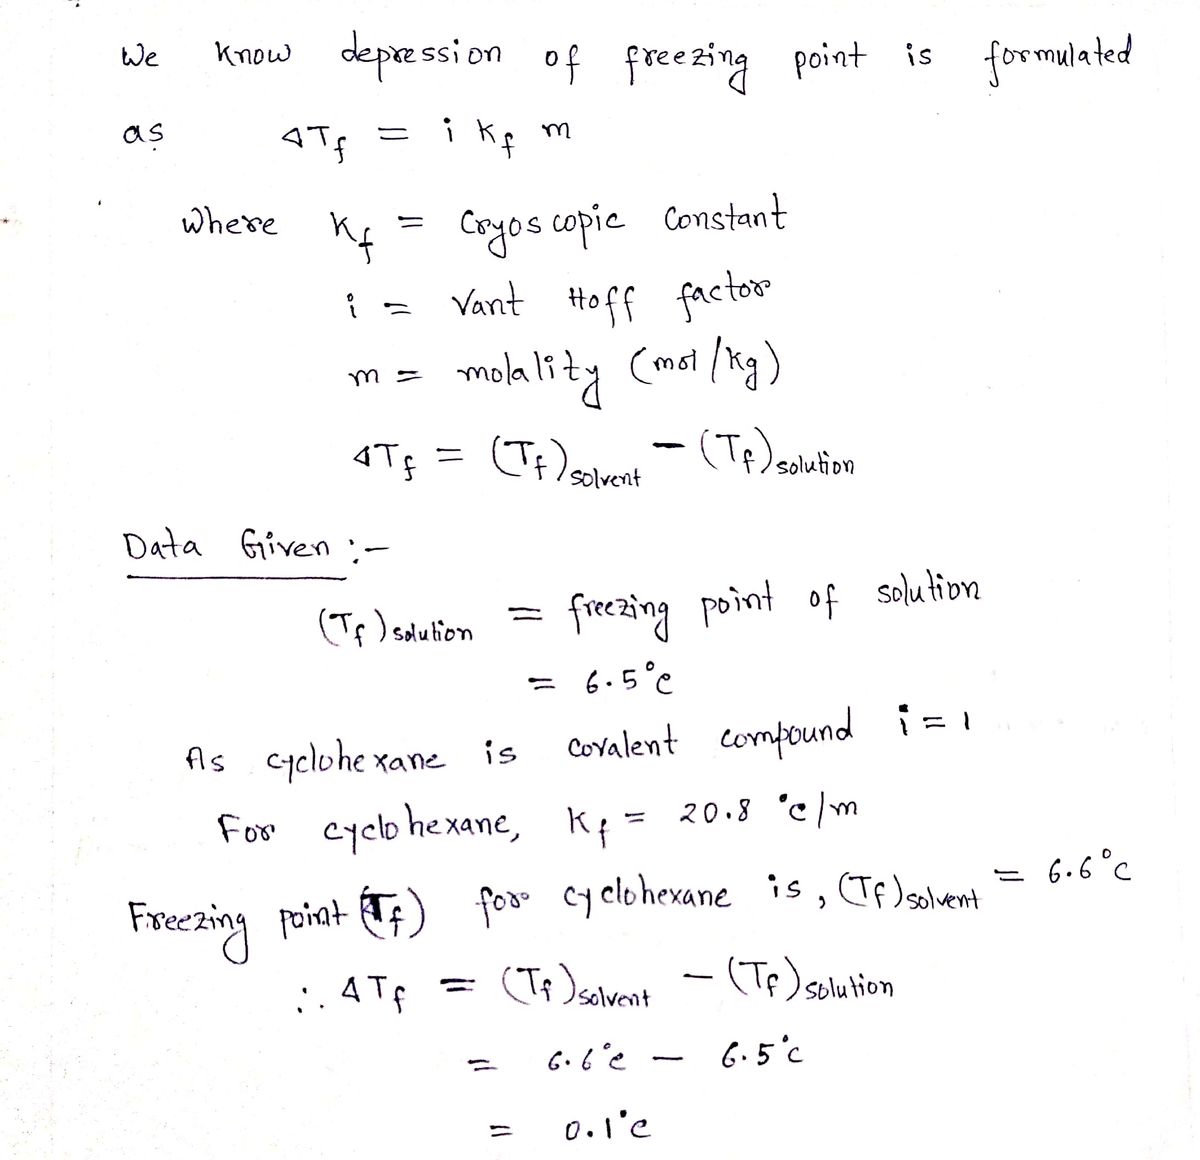 We know depression of freezing point is formulated
as ΔTf = i Kf m
Where Kf = Cryoscopic Constant
i = Vant Hoff factor
m = molality (mol/kg)
ΔTf = (Tf)solvent - (Tf)solution
Data Given :-
(Tf)solution = freezing point of solution
= 6.5°C
As cyclohexane is covalent compound i = 1
For cyclohexane, Kf = 20.8 °C/m
Freezing point (Tf) for cyclohexane is, (Tf)solvent = 6.6°C
∴ ΔTf = (Tf)solvent - (Tf)solution
= 6.6°C - 6.5°C
= 0.1°C